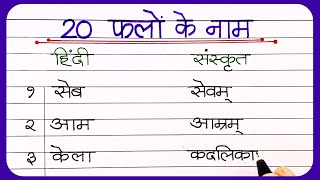 20 फलों के नाम
हिंदी संस्कृत
१ सेब सेवम्
२ आम आम्रम्
३ केला कदलिका